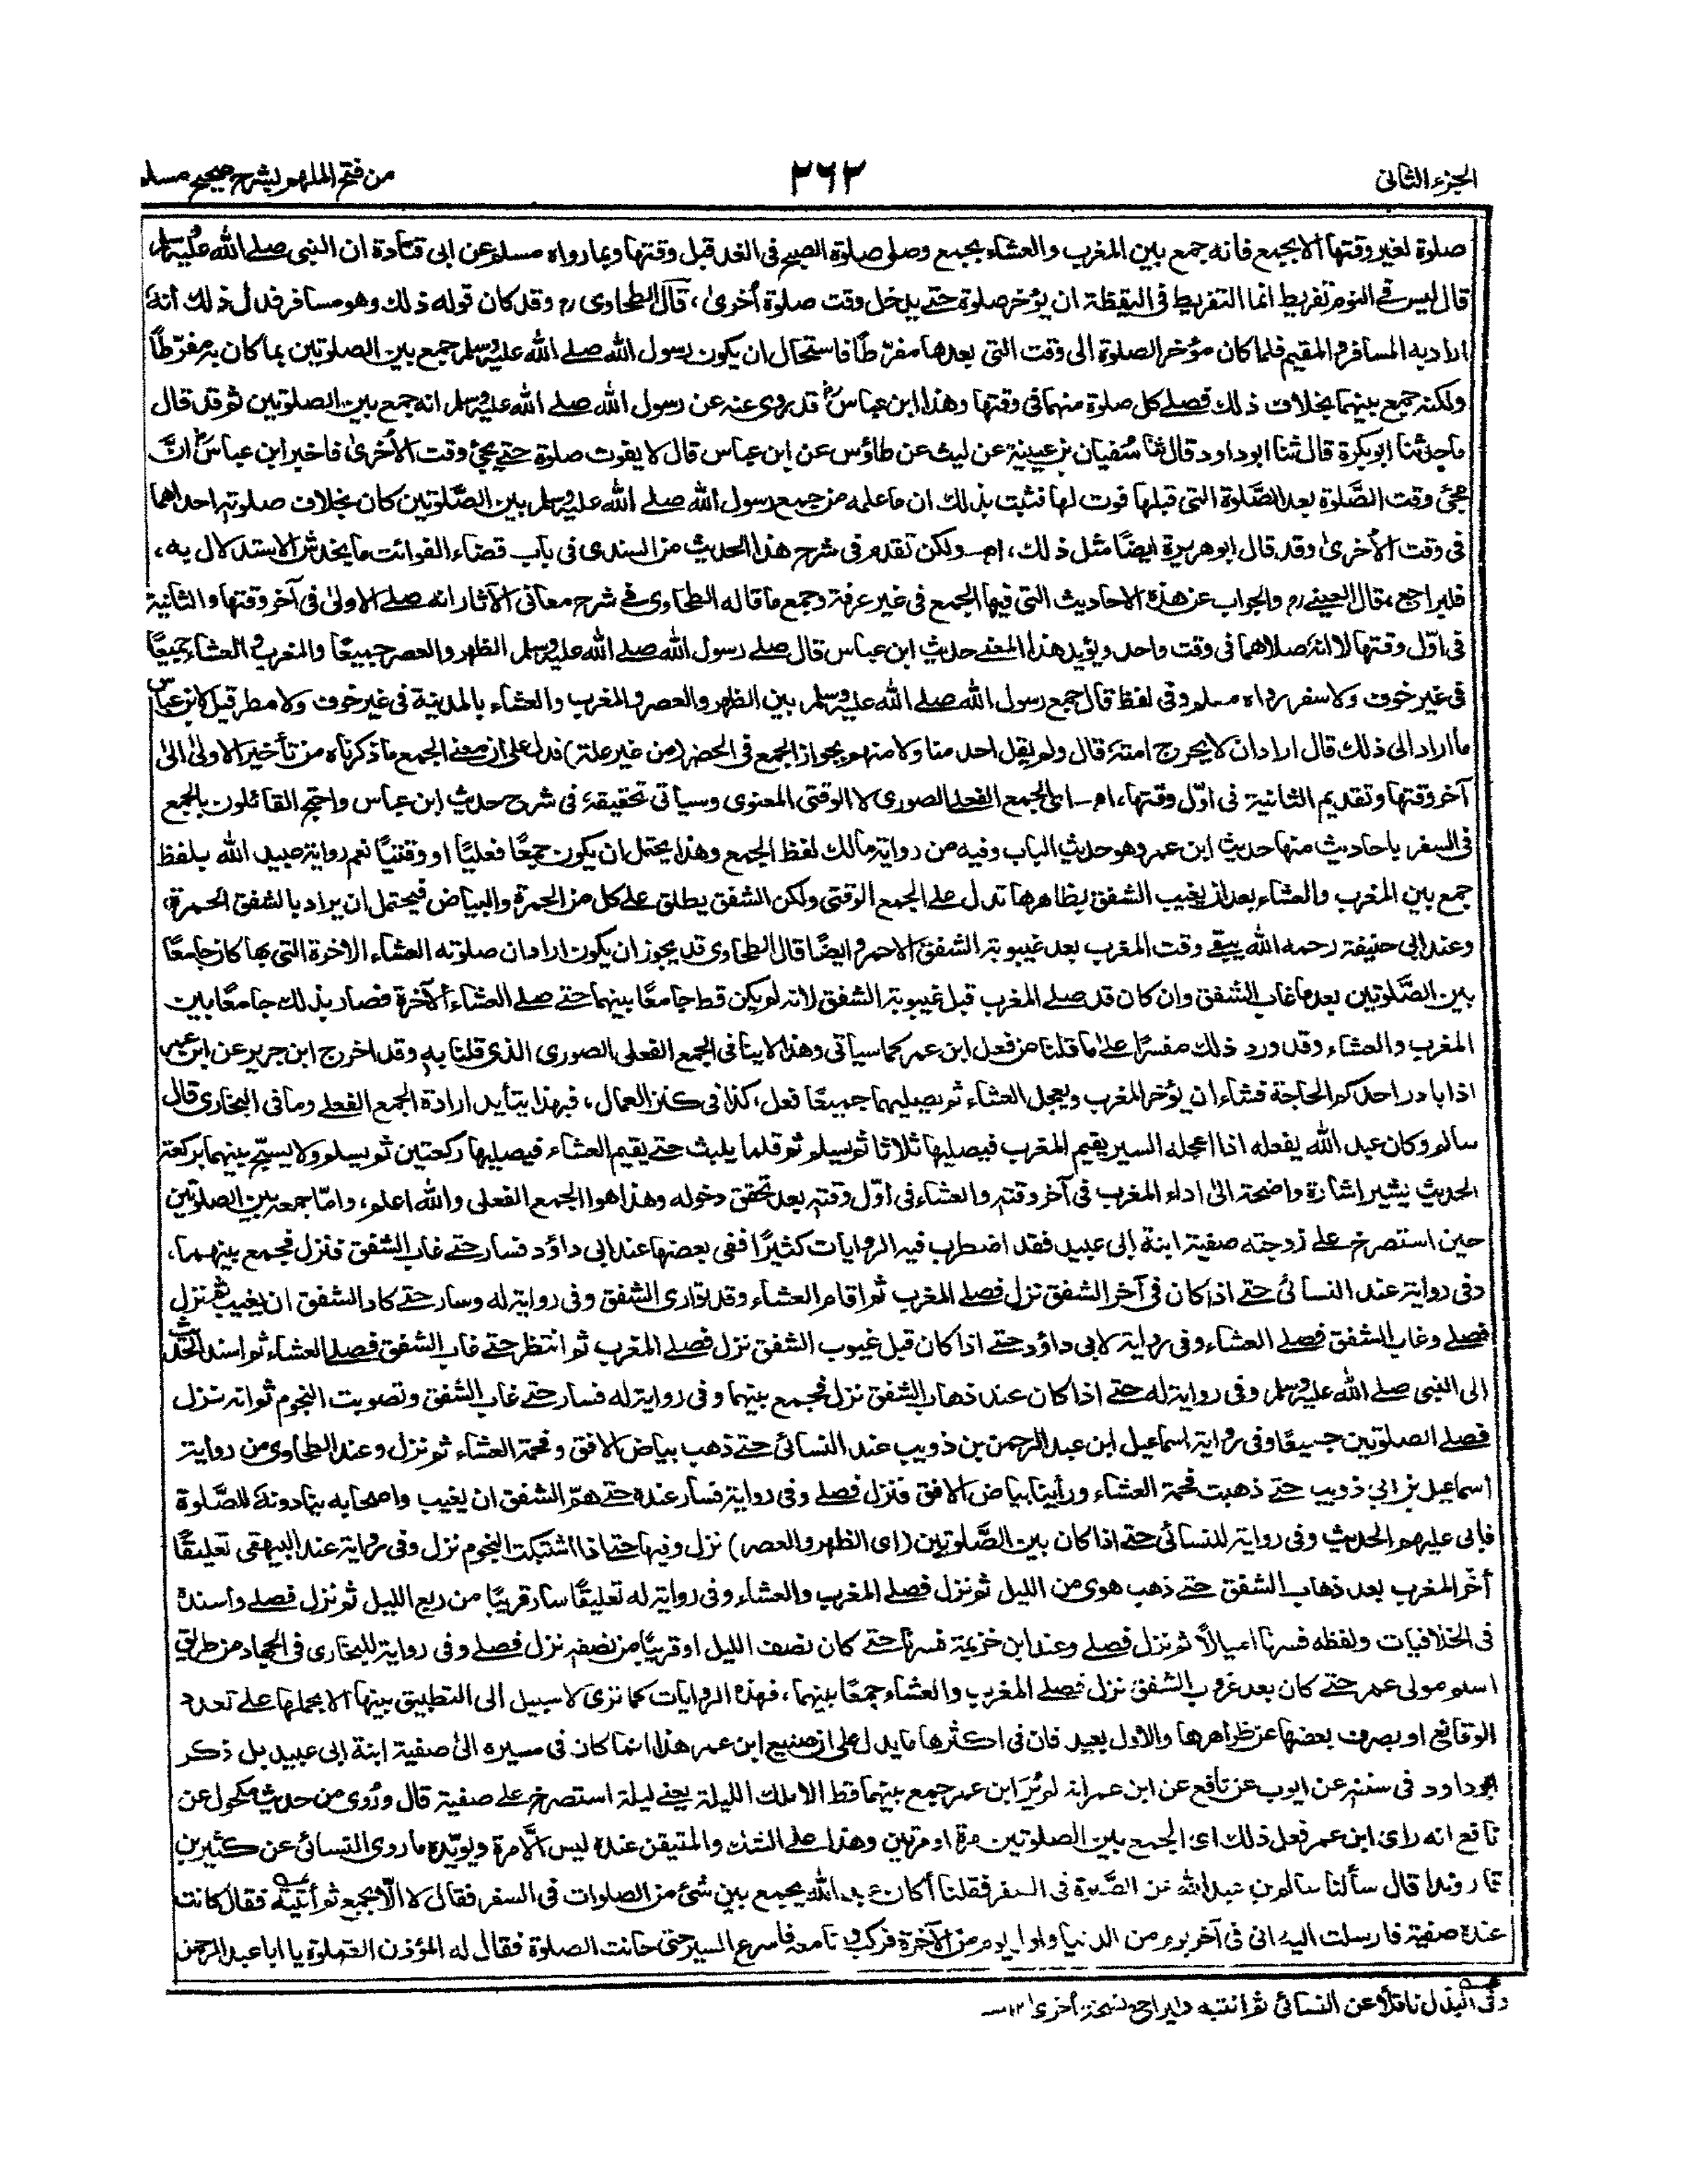 الجزء الثانى
٢٦٢
من فتح الملهم بشرح صحيح مسلم
صلوة لغير وقتها الا بجمع فانه جمع بين المغرب والعشاء بجمع وصلى صلوة الصبح فى الغد قبل وقتها وبما رواه مسلم عن ابى قتادة ان النبى صلى الله عليه وسلم
قال ليس فى النوم تفريط انما التفريط فى اليقظة ان يؤخر صلوة حتى يدخل وقت صلوة أخرىٰ، قال الطحاوى رم وقد كان قوله ذلك وهو مسافر فدل ذلك أنه
اراد به المسافر والمقيم فلما كان مؤخر الصلوة الى وقت التى بعدها مفرّطًا فاستحال ان يكون رسول الله صلى الله عليه وسلم جمع بين الصلوتين بما كان به مفرّطًا
ولكنه جمع بينهما بخلاف ذلك فصلى كل صلوة منهما فى وقتها وهذا ابن عباس قد روى عنه عن رسول الله صلى الله عليه وسلم انه جمع بين الصلوتين ثم قد قال
ما حدثنا ابو بكرة قال ثنا ابو داود قال ثنا سُفيان بن عيينة عن ليث عن طاؤس عن ابن عباس قال لا يفوت صلوة حتى يجئ وقت الأخرىٰ فاخبر ابن عباس انّ
مجئ وقت الصَّلوة بعد الصَّلوة التى قبلها فوت لها فثبت بذلك ان ما علمه من جمع رسول الله صلى الله عليه وسلم بين الصَّلوتين كان بخلاف صلوته احداهما
فى وقت الأخرىٰ وقد قال ابو هريرة ايضًا مثل ذلك، اهـ ولكن تقدم فى شرح هذا الحديث من السندى فى باب قضاء الفوائت ما يخدش الاستدلال به،
فليراجع، قال العينى رم والجواب عن هذه الاحاديث التى فيها الجمع فى غير عرفة وجمع ما قاله الطحاوى فى شرح معانى الآثار انه صلى الاولىٰ فى آخر وقتها والثانية
فى اوّل وقتها لا انه صلاهما فى وقت واحد ويؤيد هذا المعنى حديث ابن عباس قال صلى رسول الله صلى الله عليه وسلم الظهر والعصر جميعًا والمغرب والعشاء جميعًا
فى غير خوف ولا سفر رواه مسلم وفى لفظ قال جمع رسول الله صلى الله عليه وسلم بين الظهر والعصر والمغرب والعشاء بالمدينة فى غير خوف ولا مطر قيل لابن عباس
ما اراد الى ذلك قال اراد ان لا يحرج امته قال ولم يقل احد منا ولا منهم بجواز الجمع فى الحضر (من غير علة) فدل على ان معنى الجمع ما ذكرناه من تأخير الاولىٰ الىٰ
آخر وقتها وتقديم الثانية فى اوّل وقتها، اهـ اى الجمع الفعلى الصورى لا الوقتى المعنوى وسيأتى تحقيقه فى شرح حديث ابن عباس واحتج القائلون بالجمع
فى السفر باحاديث منها حديث ابن عمر وهو حديث الباب وفيه من رواية مالك لفظ الجمع وهذا يحتمل ان يكون جمعًا فعليًا او وقتيًا نعم رواية عبيد الله بلفظ
جمع بين المغرب والعشاء بعد ان يغيب الشفق بظاهرها تدل على الجمع الوقتى ولكن الشفق يطلق على كل من الحمرة والبياض فيحتمل ان يراد بالشفق الحمرة،
وعند ابى حنيفة رحمه الله يبقى وقت المغرب بعد غيبوبة الشفق الاحمر وايضًا قال الطحاوى قد يجوز ان يكون اراد ان صلوته العشاء الاخرة التى بها كان جامعًا
بين الصَّلوتين بعد ما غاب الشفق وان كان قد صلى المغرب قبل غيبوبة الشفق لانه لم يكن قط جامعًا بينهما حتى صلى العشاء الآخرة فصار بذلك جامعًا بين
المغرب والعشاء وقد ورد ذلك مفسرًا على ما قلنا من فعل ابن عمر كما سيأتى وهذا لا ينافى الجمع الفعلى الصورى الذى قلنا به وقد اخرج ابن جرير عن ابن عمر
اذا بادر احدكم الحاجة فشاء ان يؤخر المغرب ويعجل العشاء ثم يصليهما جميعًا فعل، كذا فى كنز العمال، فبهذا يتأيد ارادة الجمع الفعلى وما فى البخارى قال
سالم وكان عبد الله يفعله اذا اعجله السير يقيم المغرب فيصليها ثلاثا ثم يسلم ثم قلما يلبث حتى يقيم العشاء فيصليها ركعتين ثم يسلم ولا يسبّح بينهما بركعة
الحديث يشير اشارة واضحة الىٰ اداء المغرب فى آخر وقته والعشاء فى اوّل وقته بعد تحقق دخوله وهذا هو الجمع الفعلى والله اعلم، وامّا جمعه بين الصلوتين
حين استصرخ على زوجته صفية ابنة ابى عبيد فقد اضطرب فيه الروايات كثيرًا ففى بعضها عند ابى داؤد فسار حتى غاب الشفق فنزل فجمع بينهما،
وفى رواية عند النسائى حتى اذا كان فى آخر الشفق نزل فصلى المغرب ثم اقام العشاء وقد توارى الشفق وفى رواية له وسار حتى كاد الشفق ان يغيب ثم نزل
فصلى وغاب الشفق فصلى العشاء وفى رواية لابى داؤد حتى اذا كان قبل غيوب الشفق نزل فصلى المغرب ثم انتظر حتى غاب الشفق فصلى العشاء ثم اسند الحديث
الى النبى صلى الله عليه وسلم وفى رواية له حتى اذا كان عند ذهاب الشفق نزل فجمع بينهما وفى رواية له فسار حتى غاب الشفق وتصوبت النجوم ثم انه نزل
فصلى الصلوتين جميعًا وفى رواية اسماعيل ابن عبد الرحمن بن ذويب عند النسائى حتى ذهب بياض الافق وفحمة العشاء ثم نزل وعند الطحاوى من رواية
اسماعيل بن ابى ذويب حتى ذهبت فحمة العشاء ورأينا بياض الافق فنزل فصلى وفى رواية فسار عنده حتى همّ الشفق ان يغيب واصحابه ينادونه للصَّلوة
فابى عليهم الحديث وفى رواية للنسائى حتى اذا كان بين الصَّلوتين (اى الظهر والعصر) نزل وفيها حتى اذا اشتبكت النجوم نزل وفى رواية عند البيهقى تعليقًا
أخّر المغرب بعد ذهاب الشفق حتى ذهب هوى من الليل ثم نزل فصلى المغرب والعشاء وفى رواية له تعليقًا سار قريبًا من ربع الليل ثم نزل فصلى وأسنده
فى الخلافيات ولفظه فسرنا اميالاً ثم نزل فصلى وعند ابن خزيمة فسرنا حتى كان نصف الليل او قريبًا من نصفه نزل فصلى وفى رواية للبخارى فى الجهاد من طريق
اسلم مولى عمر حتى كان بعد غروب الشفق نزل فصلى المغرب والعشاء جمعًا بينهما، فهذه الروايات كما نرى لا سبيل الى التطبيق بينها الا بحملها على تعدد
الوقائع او بصرف بعضها عن ظواهرها والاول بعيد فان فى اكثرها ما يدل على ان صنيع ابن عمر هذا انما كان فى مسيره الىٰ صفية ابنة ابى عبيد بل ذكر
ابو داود فى سننه عن ايوب عن نافع عن ابن عمر انه لم يُرَ ابن عمر جمع بينهما قط الا تلك الليلة يعنى ليلة استصرخ على صفية قال ورُوى من حديث مكحول عن
نافع انه رأى ابن عمر فعل ذلك اى الجمع بين الصلوتين مرة او مرتين وهذا على الشك والمتيقن عنده ليس الّا مرة ويؤيّده ما روى النسائى عن كثير بن
قاروندا قال سألنا سالم بن عبد الله عن الصَّلوة فى السفر فقلنا أكان عبد الله يجمع بين شئ من الصلوات فى السفر فقال لا الّا بجمع ثم أتيته فقال كانت
عنده صفية فارسلت اليه انى فى آخر يوم من الدنيا واول يوم من الآخرة فركب وانا معه فاسرع السير حتى حانت الصلوة فقال له المؤذن الصلوة يا ابا عبد الرحمن
وفى البذل ناقلاً عن النسائى ثم انتبه فليراجع نسخة أخرى ١٢